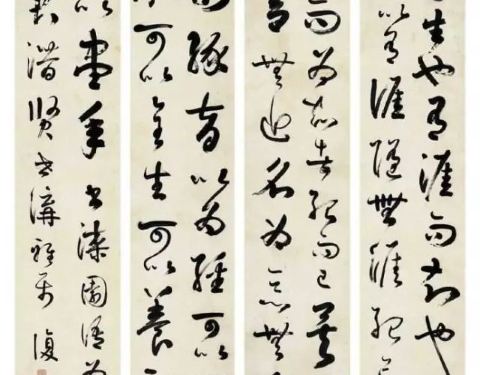 生也有涯而知也
以有涯隨無涯殆
而為知者殆而已矣
無近名為惡無
緣督以為經可以
可以全生可以養
以盡年書漆園語為
潛賢世講雅屬 復